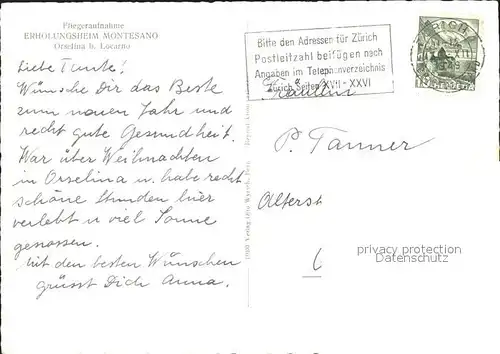 Fliegeraufnahme
ERHOLUNGSHEIM MONTESANO
Orselina b. Locarno
Liebe Tante!
Wünsche Dir das Beste
zum neuen Jahr und
recht gute Gesundheit.
War über Weihnachten
in Orselina u. habe recht
schöne Stunden hier
verlebt u viel Sonne
genossen.
Mit den besten Wünschen
grüsst Dich Anna.
Bitte den Adressen für Zürich
Postleitzahl beifügen nach
Angaben im Telephonverzeichnis
Zürich Seiten XVII - XXVI
Fräulein
P. Tanner
Alterst
6
privacy protection
Datenschutz